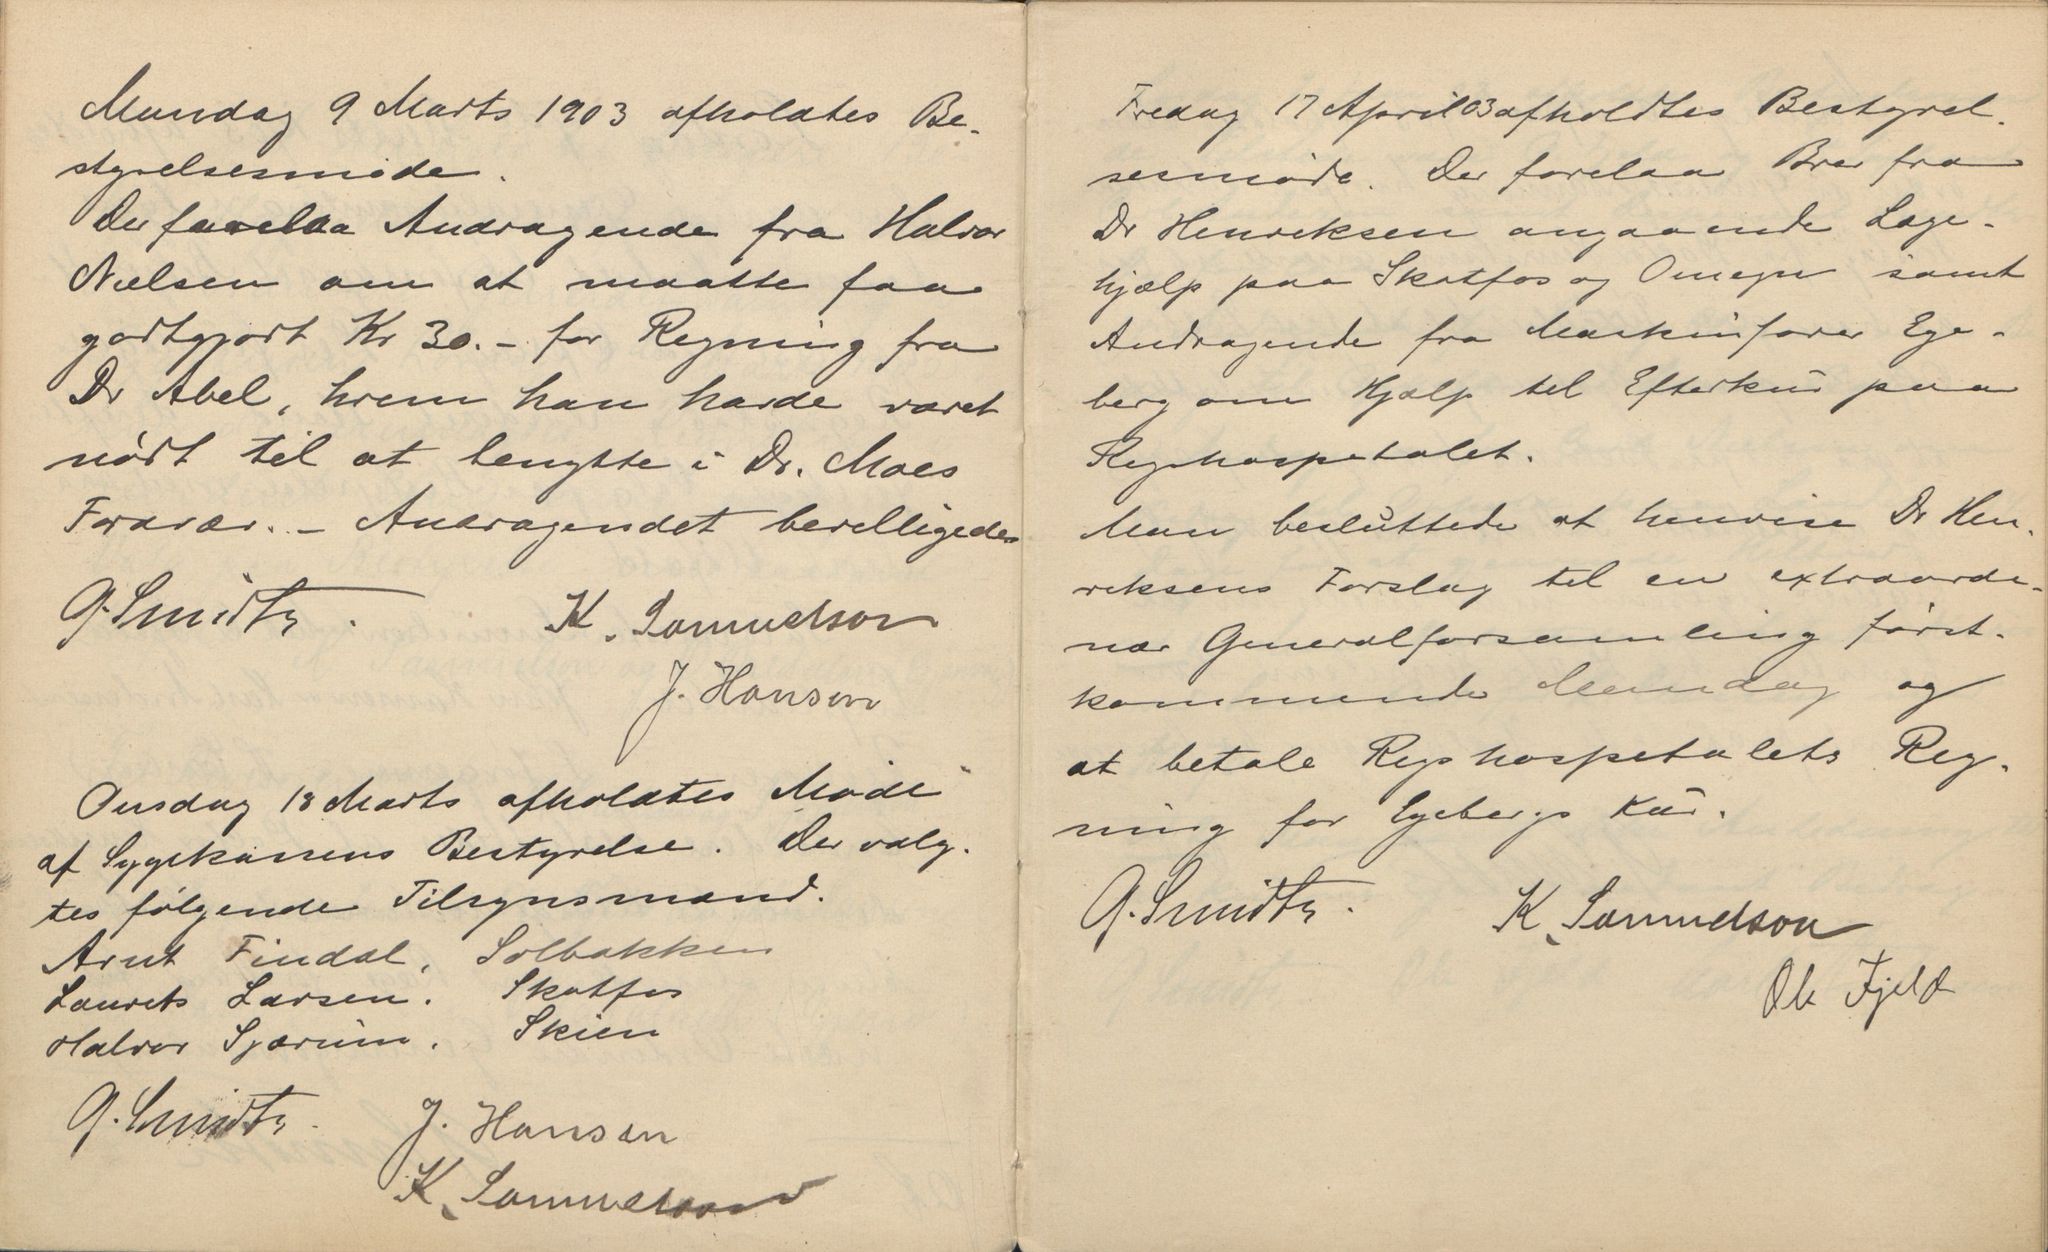 Mandag 9 Marts 1903 afholdtes Be-
styrelsesmøde.
Der forelaa Andragende fra Halvor
Nielsen om at maatte faa
godtgjort Kr 30.- for Regning fra
Dr Abel, hvem han havde været
nødt til at benytte i Dr. Moes
Fravær. - Andragendet bevilligedes
G. Smidth. K. Samuelson
J. Hansen
Onsdag 18 Marts afholdtes Møde
af Sygekassens Bestyrelse. Der valg-
tes følgende Tilsynsmænd.
Arnt Findal, Solbakken
Laurits Larsen. Skotfos
Halvor Sjærum. Skien
G. Smidth. J. Hansen
K. Samuelson
Fredag 17 April 03 afholdtes Bestyrel-
sesmøde. Der forelaa Brev fra
Dr Henriksen angaaende Læge-
hjælp paa Skotfos og Omegn samt
Andragende fra Maskinfører Ege-
berg om Hjælp til Efterkur paa
Rigshospitalet.
Man besluttede at henvise Dr Hen-
riksens Forslag til en extraordi-
nær Generalforsamling først-
kommende Mandag og
at betale Rigshospitalets Reg-
ning for Egebergs Kur.
G. Smidth. K. Samuelson
Ole Fjeld